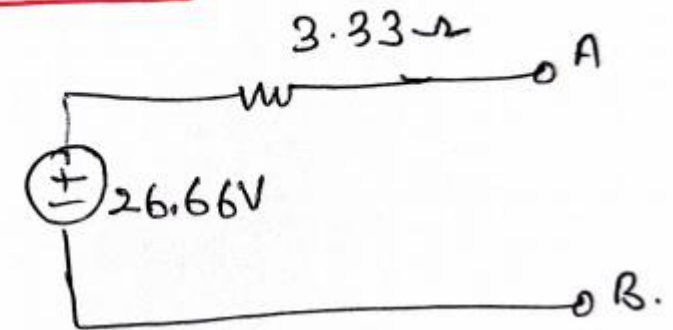 3.33Ω
A
+
-
26.66V
B.